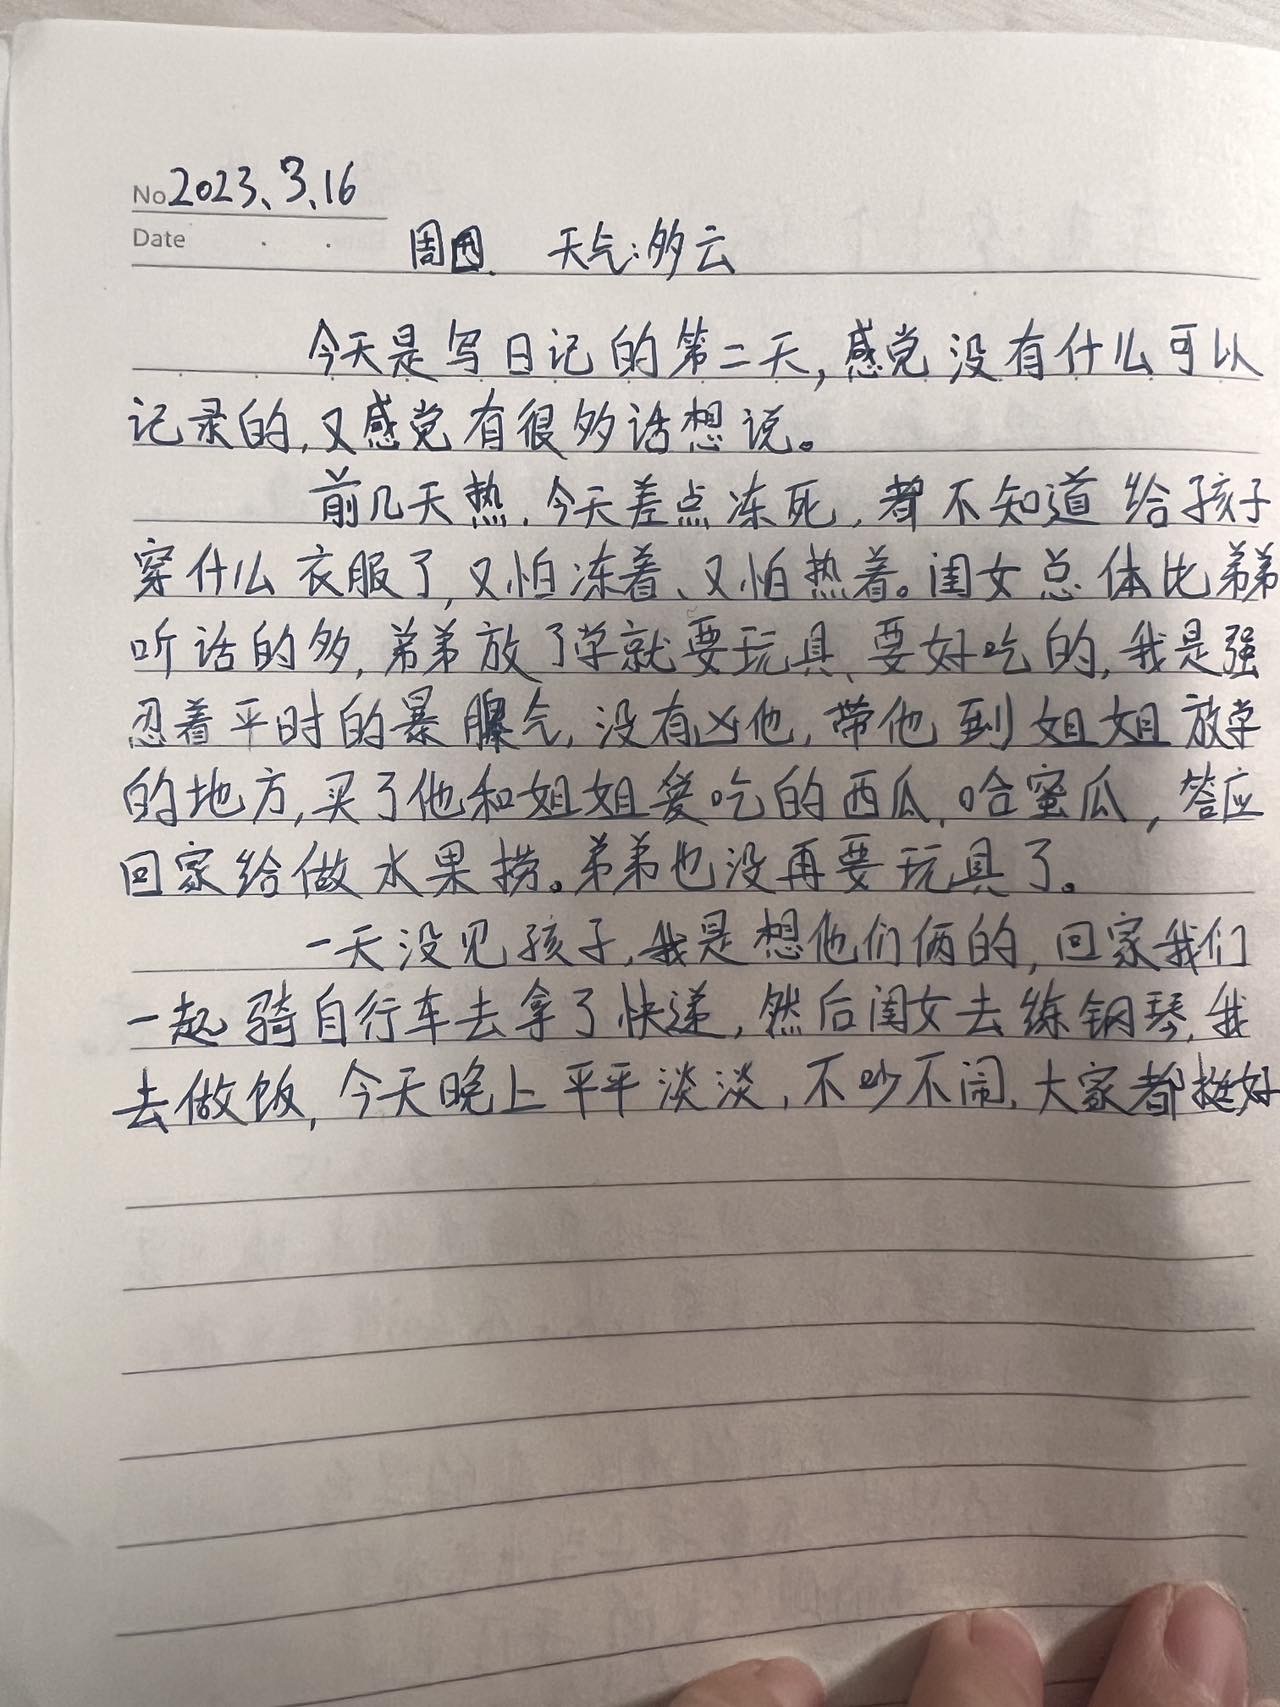 No 2023、3、16
Date
周四. 天气:多云
今天是写日记的第二天,感觉没有什么可以
记录的,又感觉有很多话想说。
前几天热,今天差点冻死,都不知道给孩子
穿什么衣服了,又怕冻着、又怕热着。闺女总体比弟弟
听话的多,弟弟放了学就要玩具、要好吃的,我是强
忍着平时的暴脾气,没有凶他,带他到姐姐放学
的地方,买了他和姐姐爱吃的西瓜、哈蜜瓜,答应
回家给做水果捞。弟弟也没再要玩具了。
一天没见孩子,我是想他们俩的,回家我们
一起骑自行车去拿了快递,然后闺女去练钢琴,我
去做饭,今天晚上平平淡淡,不吵不闹,大家都挺好